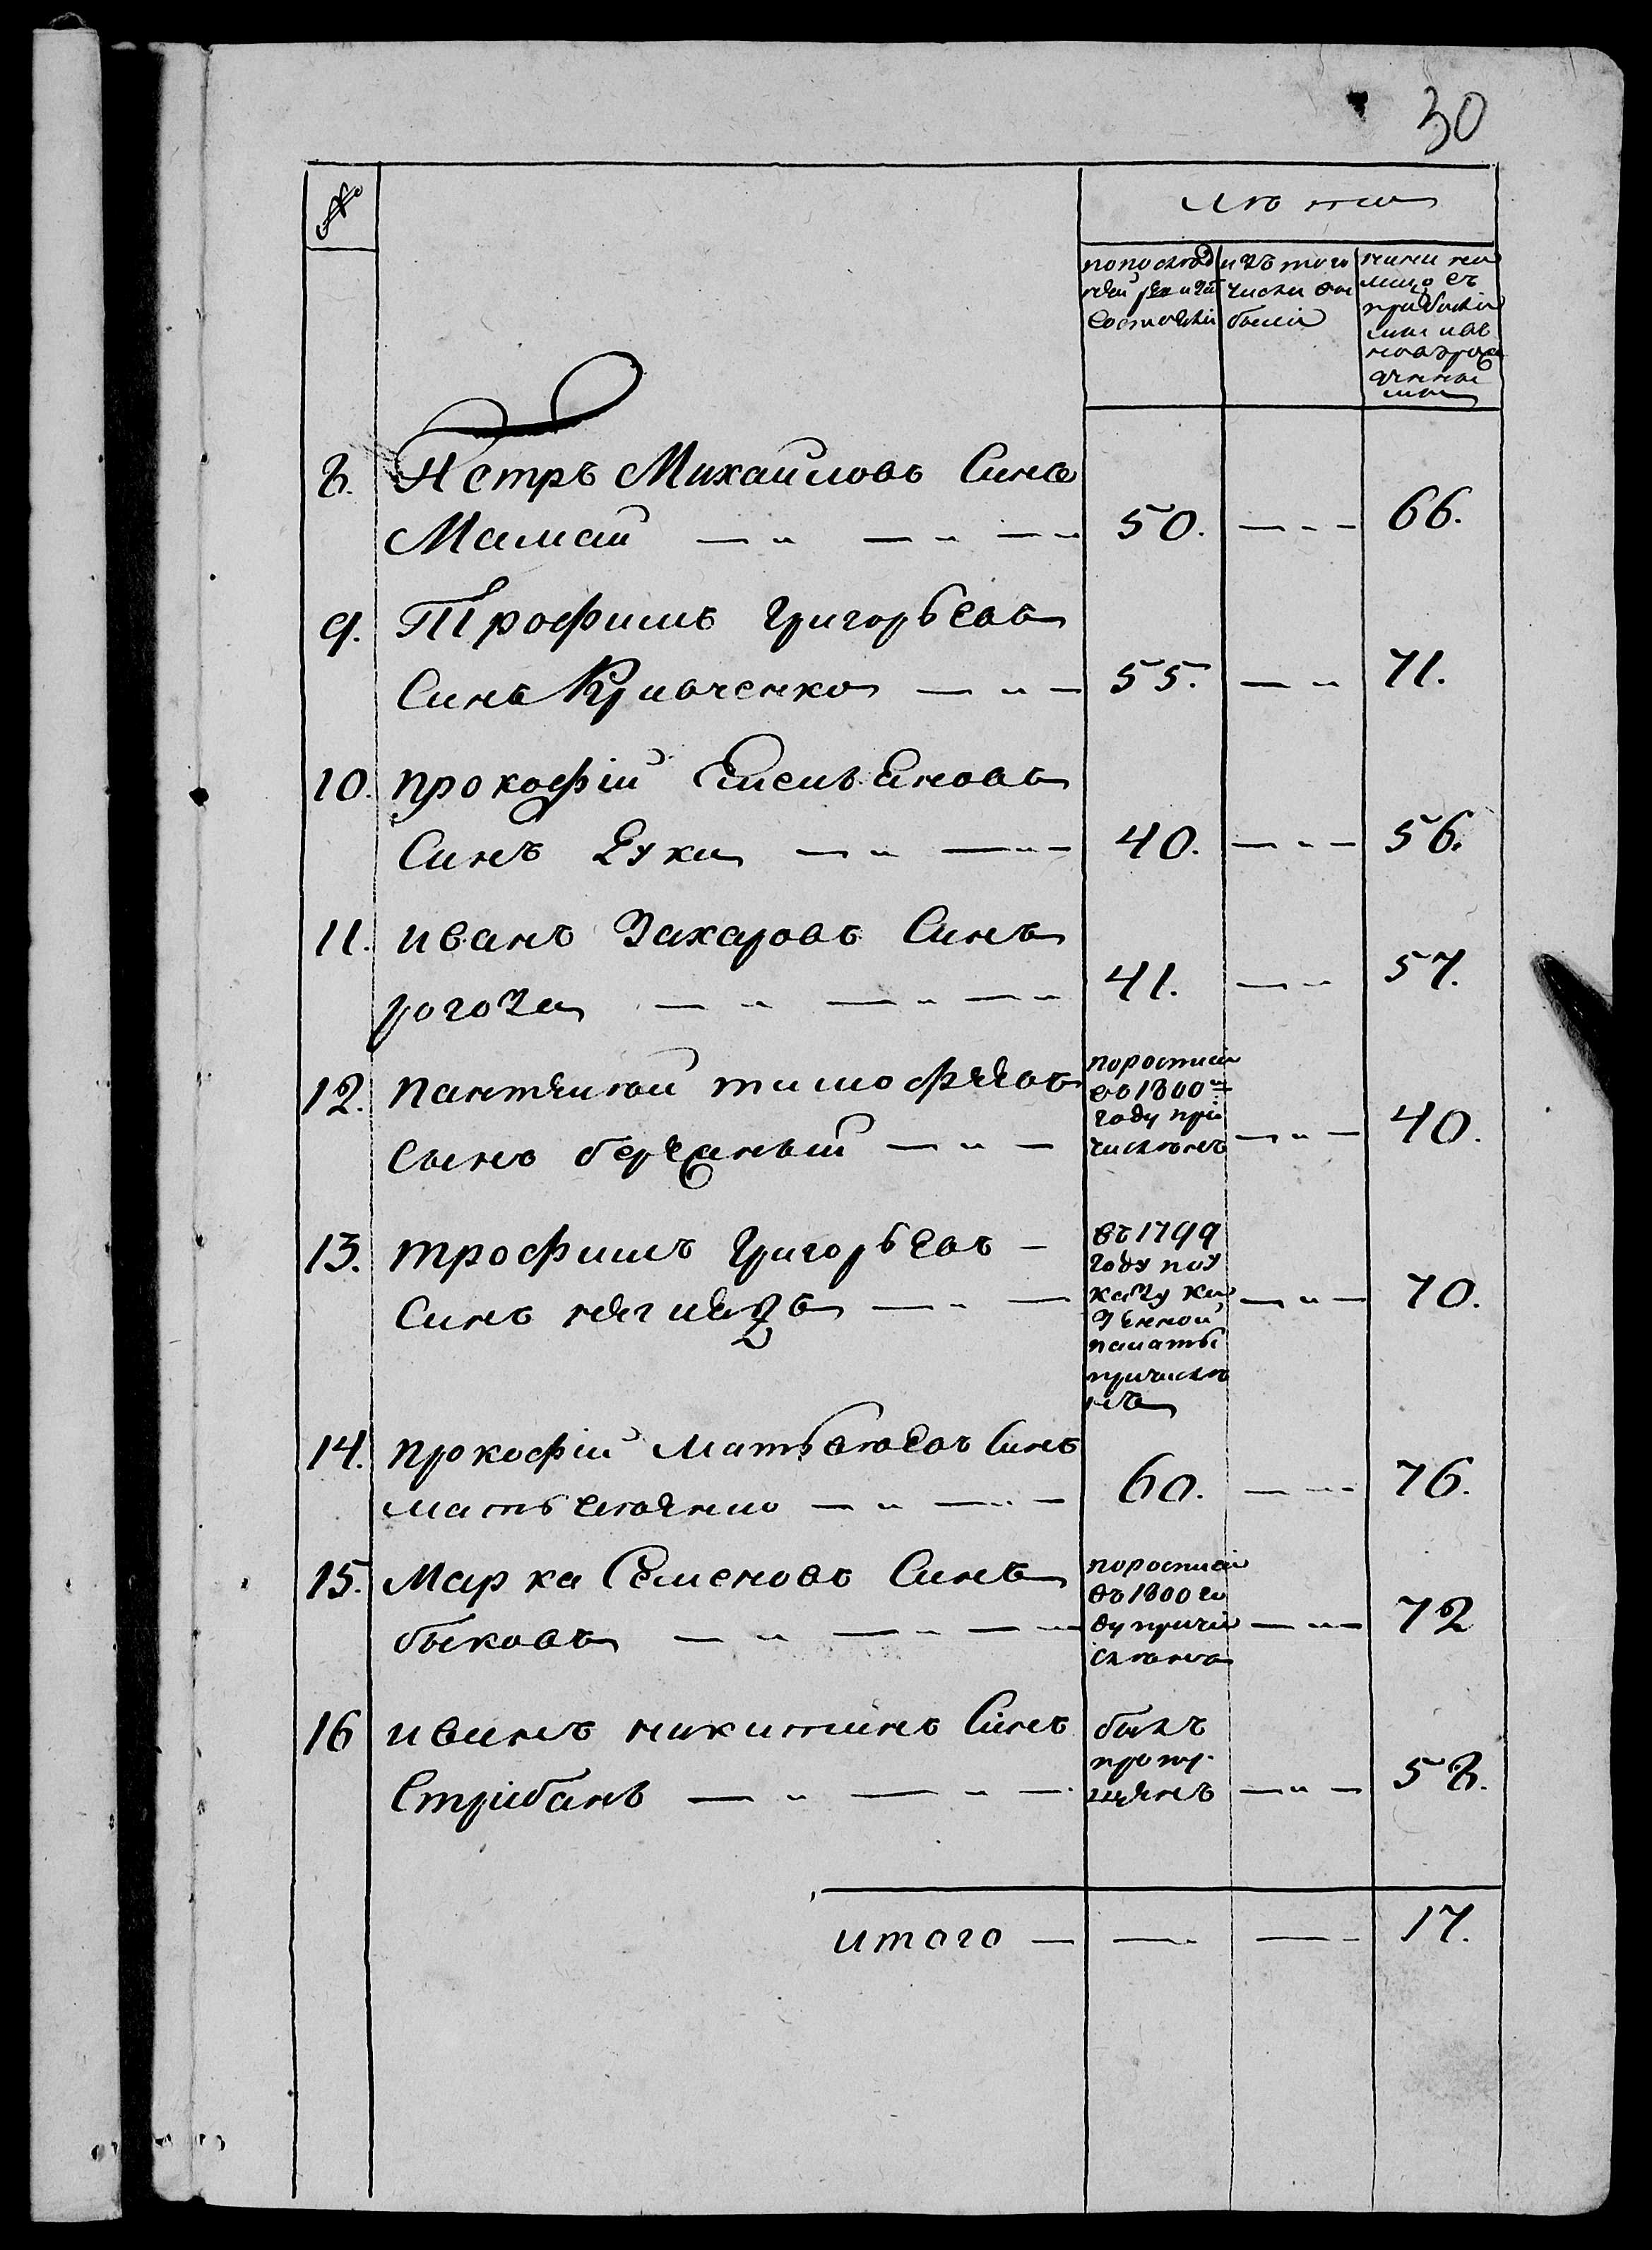 30
№
лѣта
по послѣд
ней ревизiи
состояли
изъ того
числа вы
были
ныне на
лицо съ
прибыли
ми и въ
новь рож
денны
ми
8. Петръ Михайловъ Синъ
Мамай 50. 66.
9. Трофимъ Григорьевъ
Синъ Кривченко 55. 71.
10. прокофiй Емельяновъ
Синъ Лука 40. 56.
11. иванъ Захаровъ Синъ
рогоза 41. 57.
12. пантелей тимофѣевъ
Сынъ бержаный 40.
по ростиси
въ 1800м
году при
численъ
13. трофимъ Григорьевъ
Синъ 70.
въ 1799
году по у
казу ка
зенной
палаты
причисле
нъ
14. прокофiй матьвѣевъ Синъ
60. 76.
15. Марка Семеновъ Синъ
быковъ 72
по ростиси
въ 1800 го
ду причи
сленъ
16 иванъ никитинъ Синъ
Стрибань 58.
былъ
пропу
щенъ
итого 17.